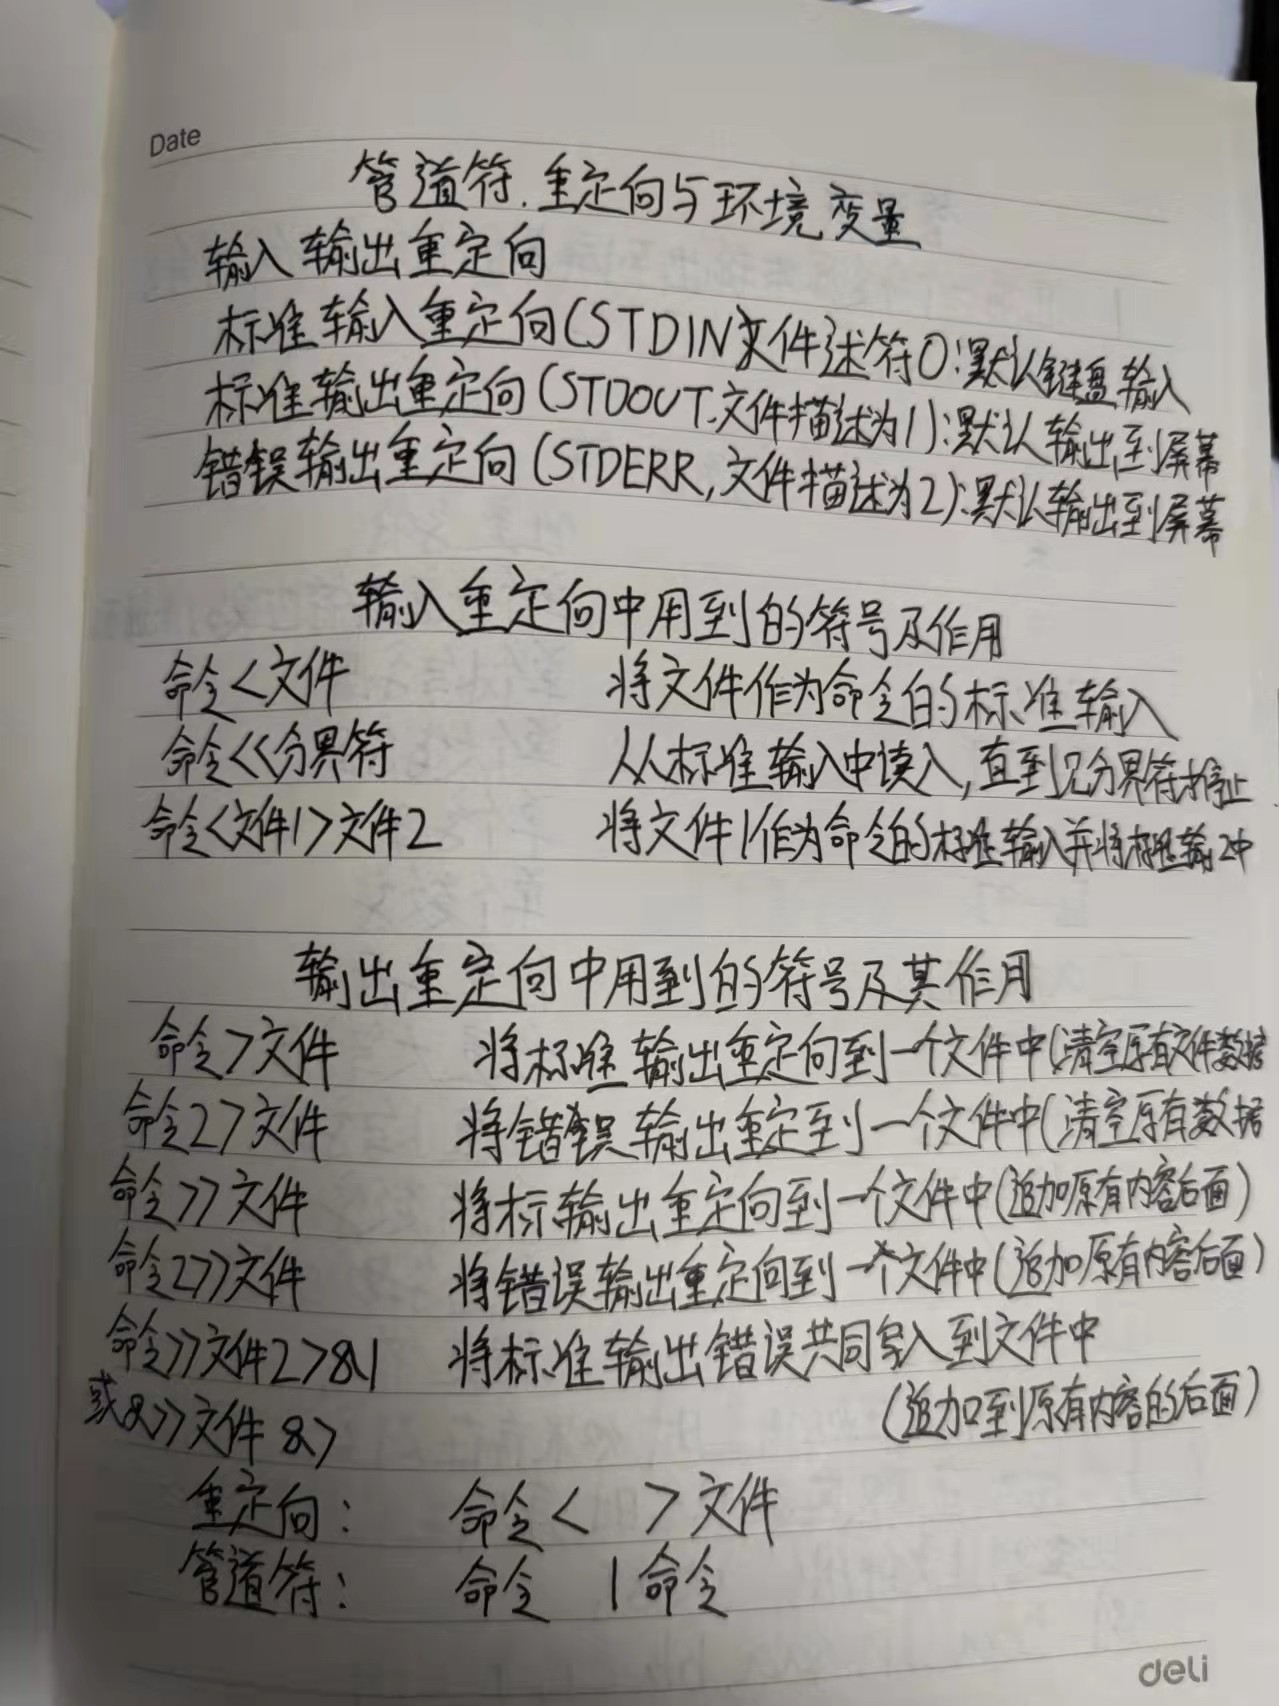 Date
管道符.重定向与环境变量
输入输出重定向
标准输入重定向(STDIN文件述符0:默认键盘输入
标准输出重定向(STDOUT.文件描述为1):默认输出到屏幕
错误输出重定向(STDERR,文件描述为2):默认输出到屏幕
输入重定向中用到的符号及作用
命令<文件 将文件作为命令的标准输入
命令<<分界符 从标准输入中读入,直到见分界符停止
命令<文件1>文件2 将文件1作为命令的标准输入并将标准输2中
输出重定向中用到的符号及其作用
命令>文件 将标准输出重定向到一个文件中(清空原有文件数据
命令2>文件 将错误输出重定到一个文件中(清空原有数据
命令>>文件 将标输出重定向到一个文件中(追加原有内容后面)
命令2>>文件 将错误输出重定向到一个文件中(追加原有内容后面)
命令>>文件2>&1 将标准输出错误共同写入到文件中
或&>>文件 &> (追加到原有内容的后面)
重定向: 命令< >文件
管道符: 命令 | 命令
deli